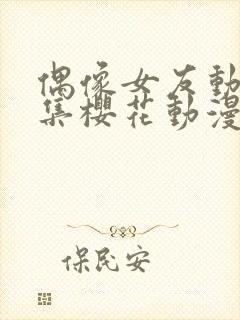 偶像女友動
集櫻花動漫
保民安